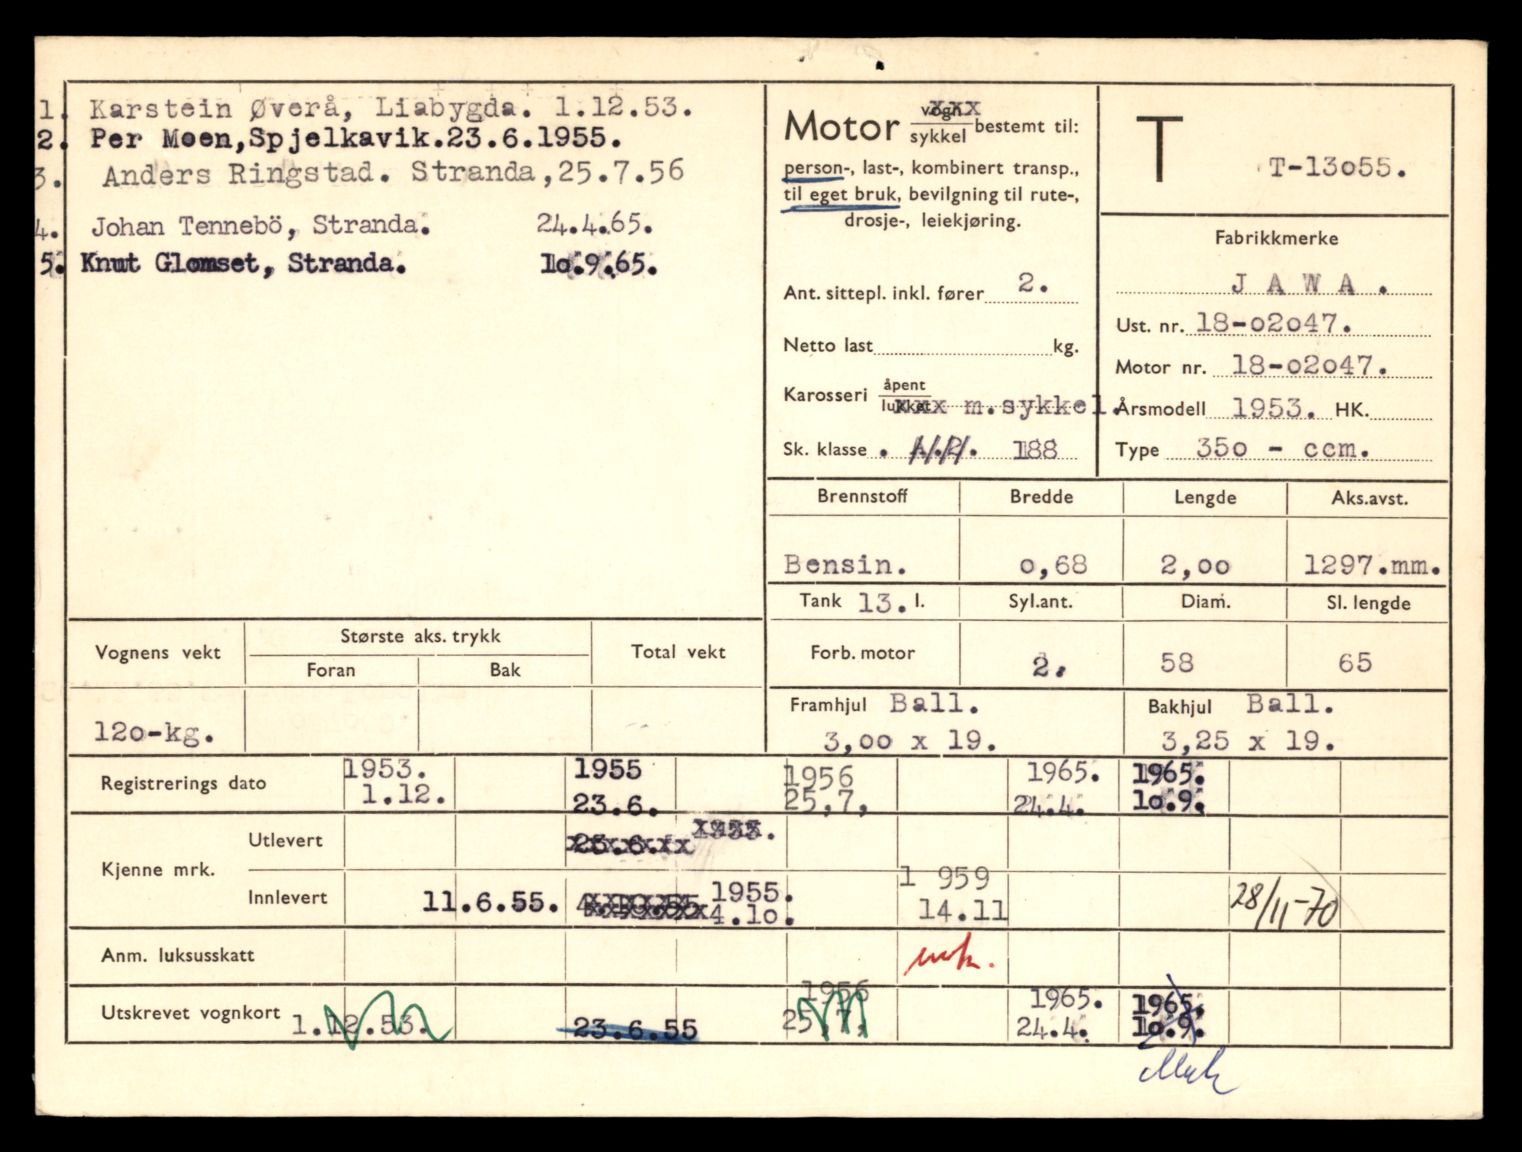 1. Karstein Øverå, Liabygda. 1.12.53.
2. Per Moen,Spjelkavik.23.6.1955.
3. Anders Ringstad. Stranda,25.7.56
4. Johan Tennebö, Stranda. 24.4.65.
5. Knut Glomset, Stranda. 10.9.65.
Motor vogn sykkel bestemt til:
person-, last-, kombinert transp.,
til eget bruk, bevilgning til rute-,
drosje-, leiekjøring.
Ant. sittepl. inkl. fører 2.
Netto last kg.
Karosseri åpent lukket m.sykkel.
Sk. klasse . 188
T T-13o55.
Fabrikkmerke
J A W A .
Ust. nr. 18-o2o47.
Motor nr. 18-o2o47.
Årsmodell 1953. HK.
Type 35o - ccm.
Brennstoff Bredde Lengde Aks.avst.
Bensin. o,68 2,oo 1297.mm.
Tank 13. l. Syl.ant. Diam. Sl. lengde
Forb. motor 2. 58 65
Framhjul Ball. Bakhjul Ball.
3,oo x 19. 3,25 x 19.
Vognens vekt Største aks. trykk Total vekt
Foran Bak
12o-kg.
Registrerings dato 1953. 1955 1956 1965. 1965.
1.12. 23.6. 25,7, 24.4. 1o.9.
Kjenne mrk.
Utlevert 23.6.
Innlevert 11.6.55. 1955. 1 959 28/11-70
4.1o. 14.11
Anm. luksusskatt
Utskrevet vognkort 1.12.53. 23.6.55 1956 1965. 1965.
25,7, 24.4. 1o.9.